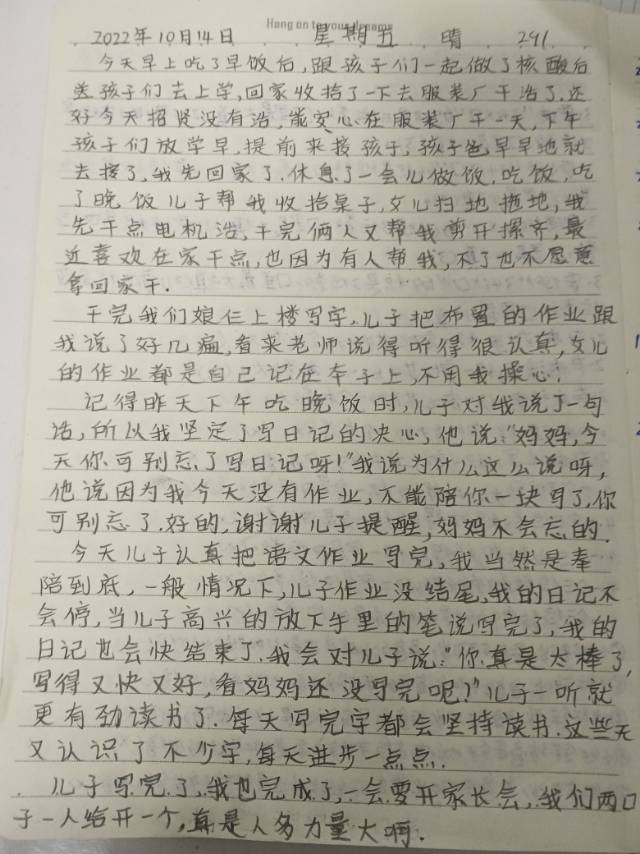 Hang on to your dreams
2022年10月14日 星期五 晴 291
今天早上吃了早饭后,跟孩子们一起做了核酸后
送孩子们去上学,回家收拾了一下去服装厂干活了.还
好今天招贤没有活,能安心在服装厂干一天,下午
孩子们放学早,提前来接孩子,孩子爸早早地就
去接了,我先回家了.休息了一会儿做饭.吃饭,吃
了晚饭儿子帮我收拾桌子,女儿扫地拖地,我
先干点电机活,干完俩人又帮我剪开摞齐,最
近喜欢在家干点,也因为有人帮我,不了也不愿意
拿回家干.
干完我们娘仨上楼写字,儿子把布置的作业跟
我说了好几遍,看来老师说得听得很认真,女儿
的作业都是自己记在本子上,不用我操心!
记得昨天下午吃晚饭时,儿子对我说了一句
话,所以我坚定了写日记的决心,他说:"妈妈,今
天你可别忘了写日记呀!"我说为什么这么说呀,
他说因为我今天没有作业,不能陪你一块写了,你
可别忘了.好的,谢谢儿子提醒,妈妈不会忘的.
今天儿子认真把语文作业写完,我当然是奉
陪到底,一般情况下,儿子作业没结尾,我的日记不
会停,当儿子高兴的放下手里的笔说写完了,我的
日记也会快结束了.我会对儿子说:"你真是太棒了,
写得又快又好,看妈妈还没写完呢!"儿子一听就
更有劲读书了.每天写完字都会坚持读书.这些天
又认识了不少字,每天进步一点点.
儿子写完了,我也完成了,一会要开家长会,我们两口
子一人给开一个,真是人多力量大啊.